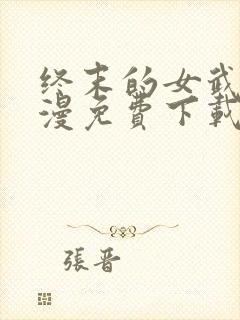 终末的女武
漫免費下載
張晋